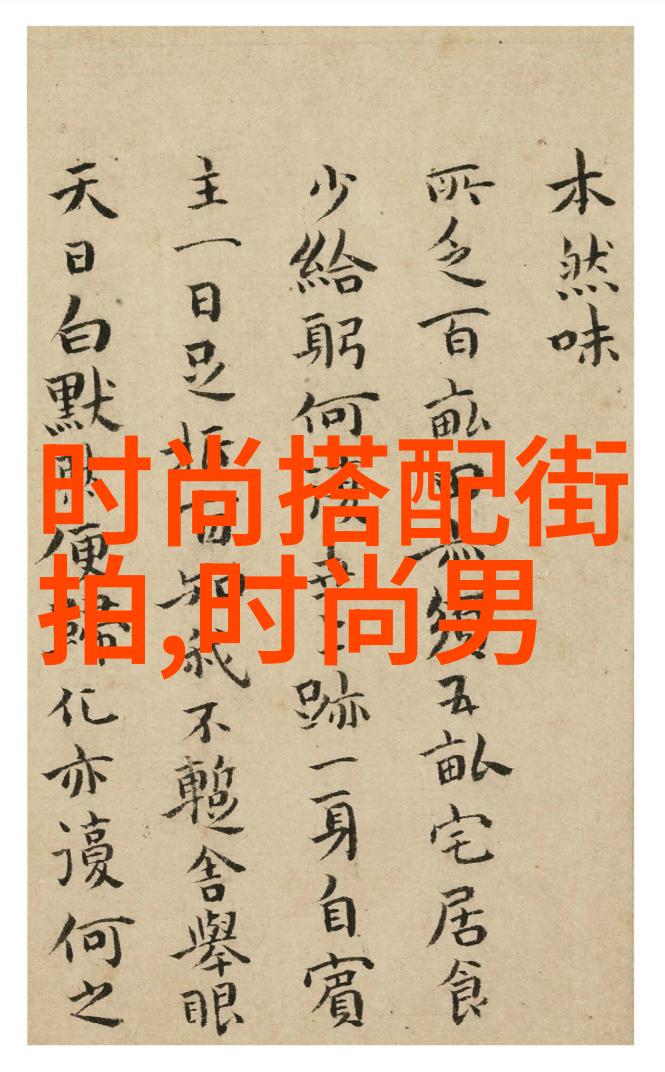 时尚搭配街
拍,时尚男
本然味
所乏百畝田無須五畝宅居食
少給躬何上跡一身自賓
主一日足知我不蹔舍舉眼
天日白默便歸化亦何之